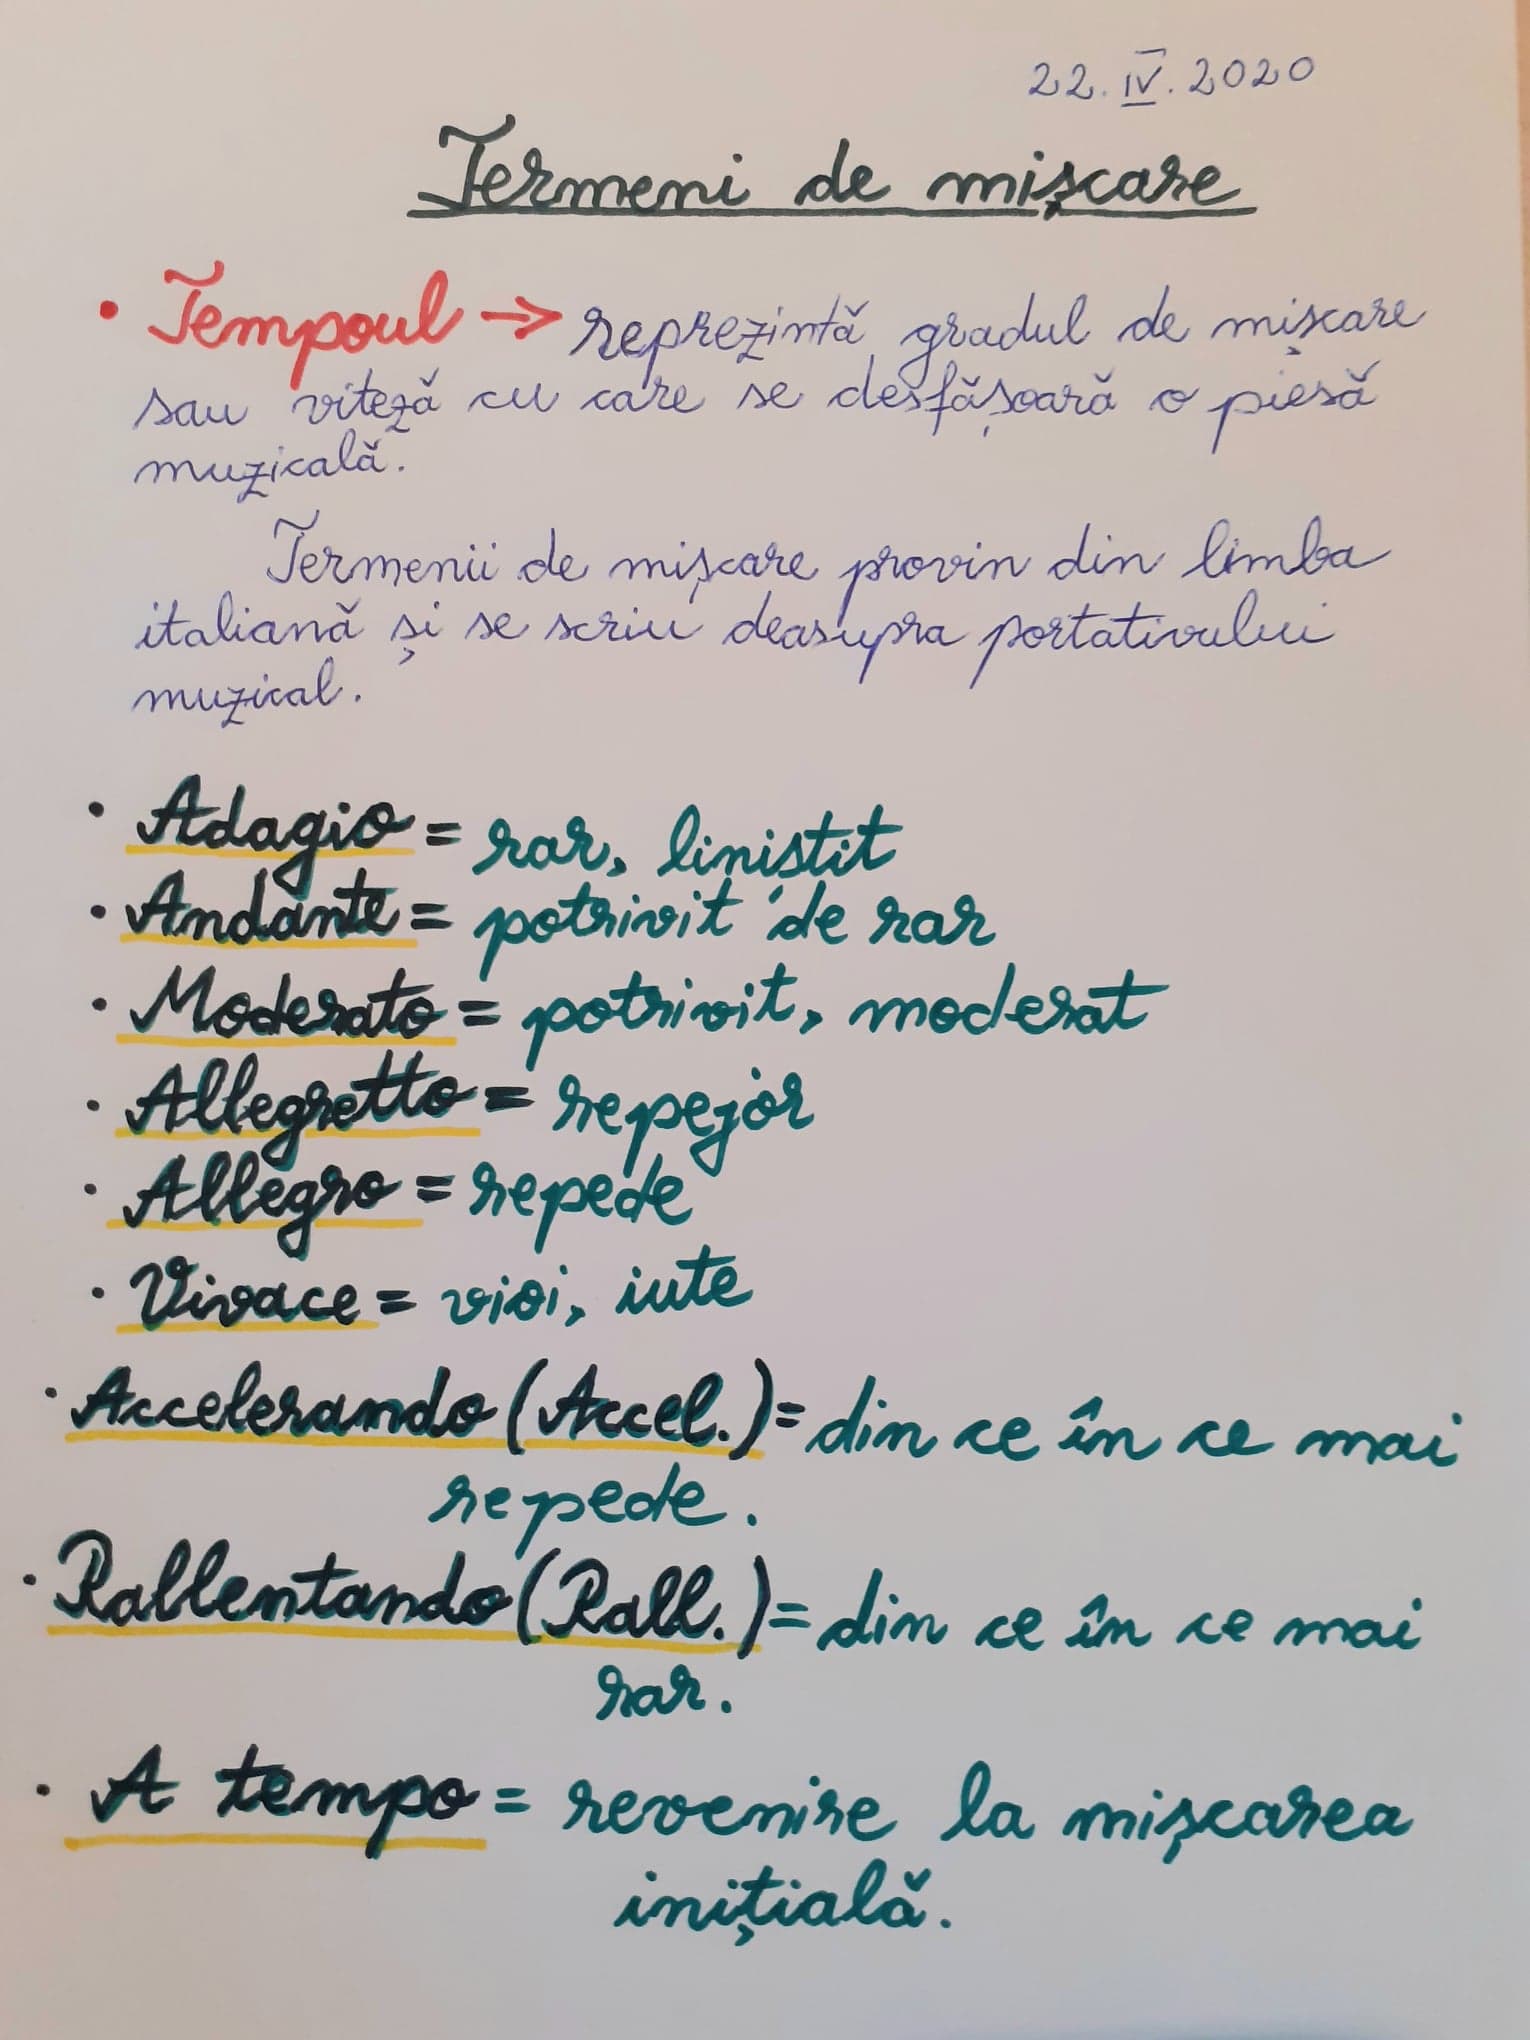 22.IV.2020
Termeni de mișcare
• Tempoul → reprezintă gradul de mișcare
sau viteză cu care se desfășoară o piesă
muzicală.
Termenii de mișcare provin din limba
italiană și se scriu deasupra portativului
muzical.
• Adagio = rar, liniștit
• Andante = potrivit de rar
• Moderato = potrivit, moderat
• Allegretto = repejor
• Allegro = repede
• Vivace = vioi, iute
• Accelerando (Accel.) = din ce în ce mai
repede.
• Rallentando (Rall.) = din ce în ce mai
rar.
• A tempo = revenire la mișcarea
inițială.